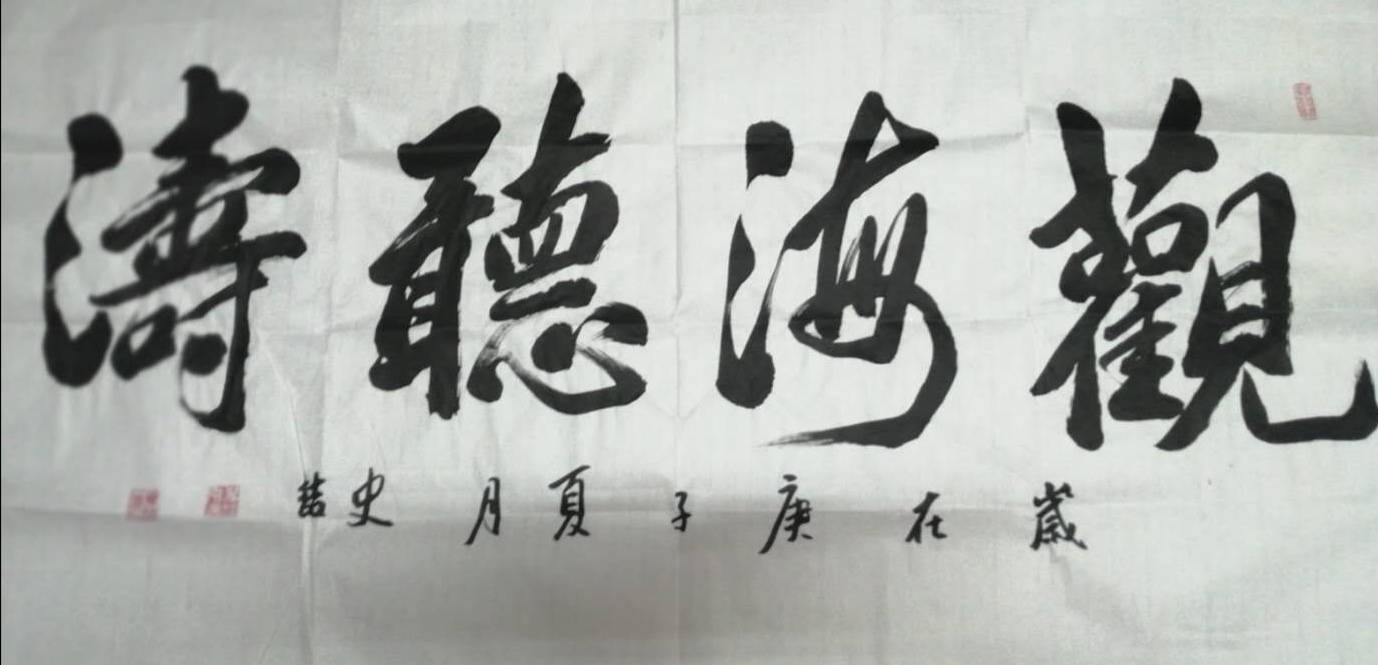 觀海聽濤
歲在庚子夏月史喆